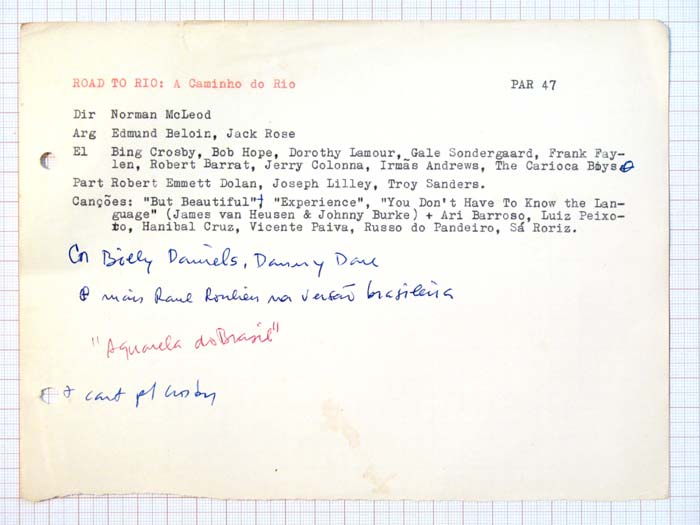 ROAD TO RIO: A Caminho do Rio PAR 47
Dir Norman McLeod
Arg Edmund Beloin, Jack Rose
El Bing Crosby, Bob Hope, Dorothy Lamour, Gale Sondergaard, Frank Fay-
len, Robert Barrat, Jerry Colonna, Irmãs Andrews, The Carioca Boys⊕
Part Robert Emmett Dolan, Joseph Lilley, Troy Sanders.
Canções: "But Beautiful"† "Experience", "You Don't Have To Know the Lan-
guage" (James van Heusen & Johnny Burke) + Ari Barroso, Luiz Peixo-
to, Hanibal Cruz, Vicente Paiva, Russo do Pandeiro, Sá Roriz.
Cn Billy Daniels, Danny Dare
⊕ mais Raul Roulien na versão brasileira
"Aquarela do Brasil"
† cant p/ Crosby